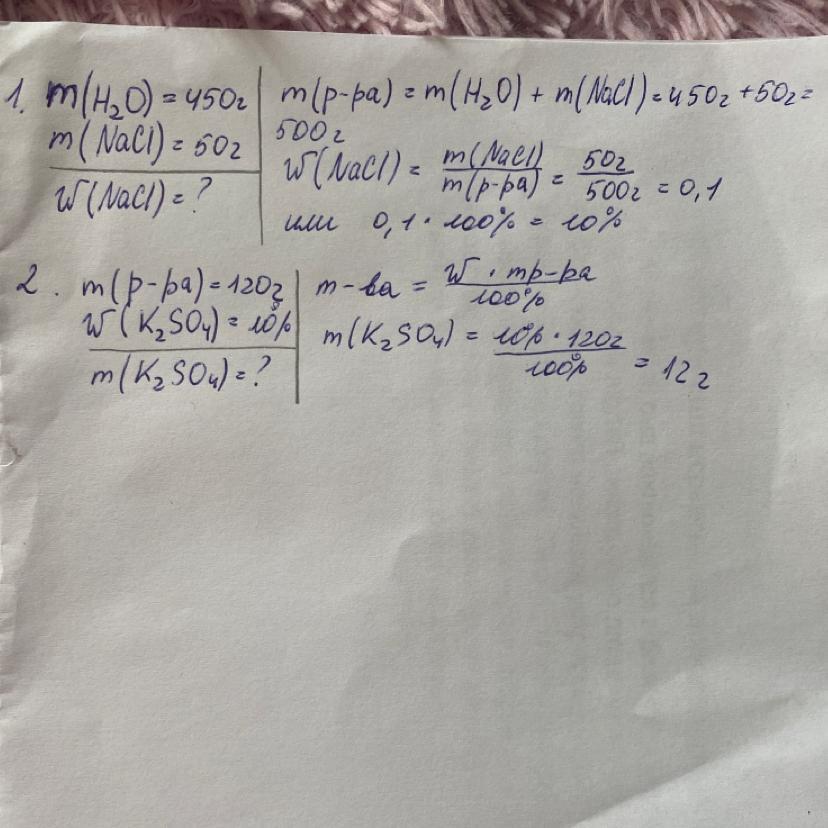 1. m(H₂O) = 450г
m(NaCl) = 50г
w(NaCl) = ?
m(р-ра) = m(H₂O) + m(NaCl) = 450г + 50г =
500г
w(NaCl) = m(NaCl) / m(р-ра) = 50г / 500г = 0,1
или 0,1 · 100% = 10%
2. m(р-ра) = 120г
w(K₂SO₄) = 10%
m(K₂SO₄) = ?
m-ва = w · mр-ра / 100%
m(K₂SO₄) = 10% · 120г / 100% = 12г